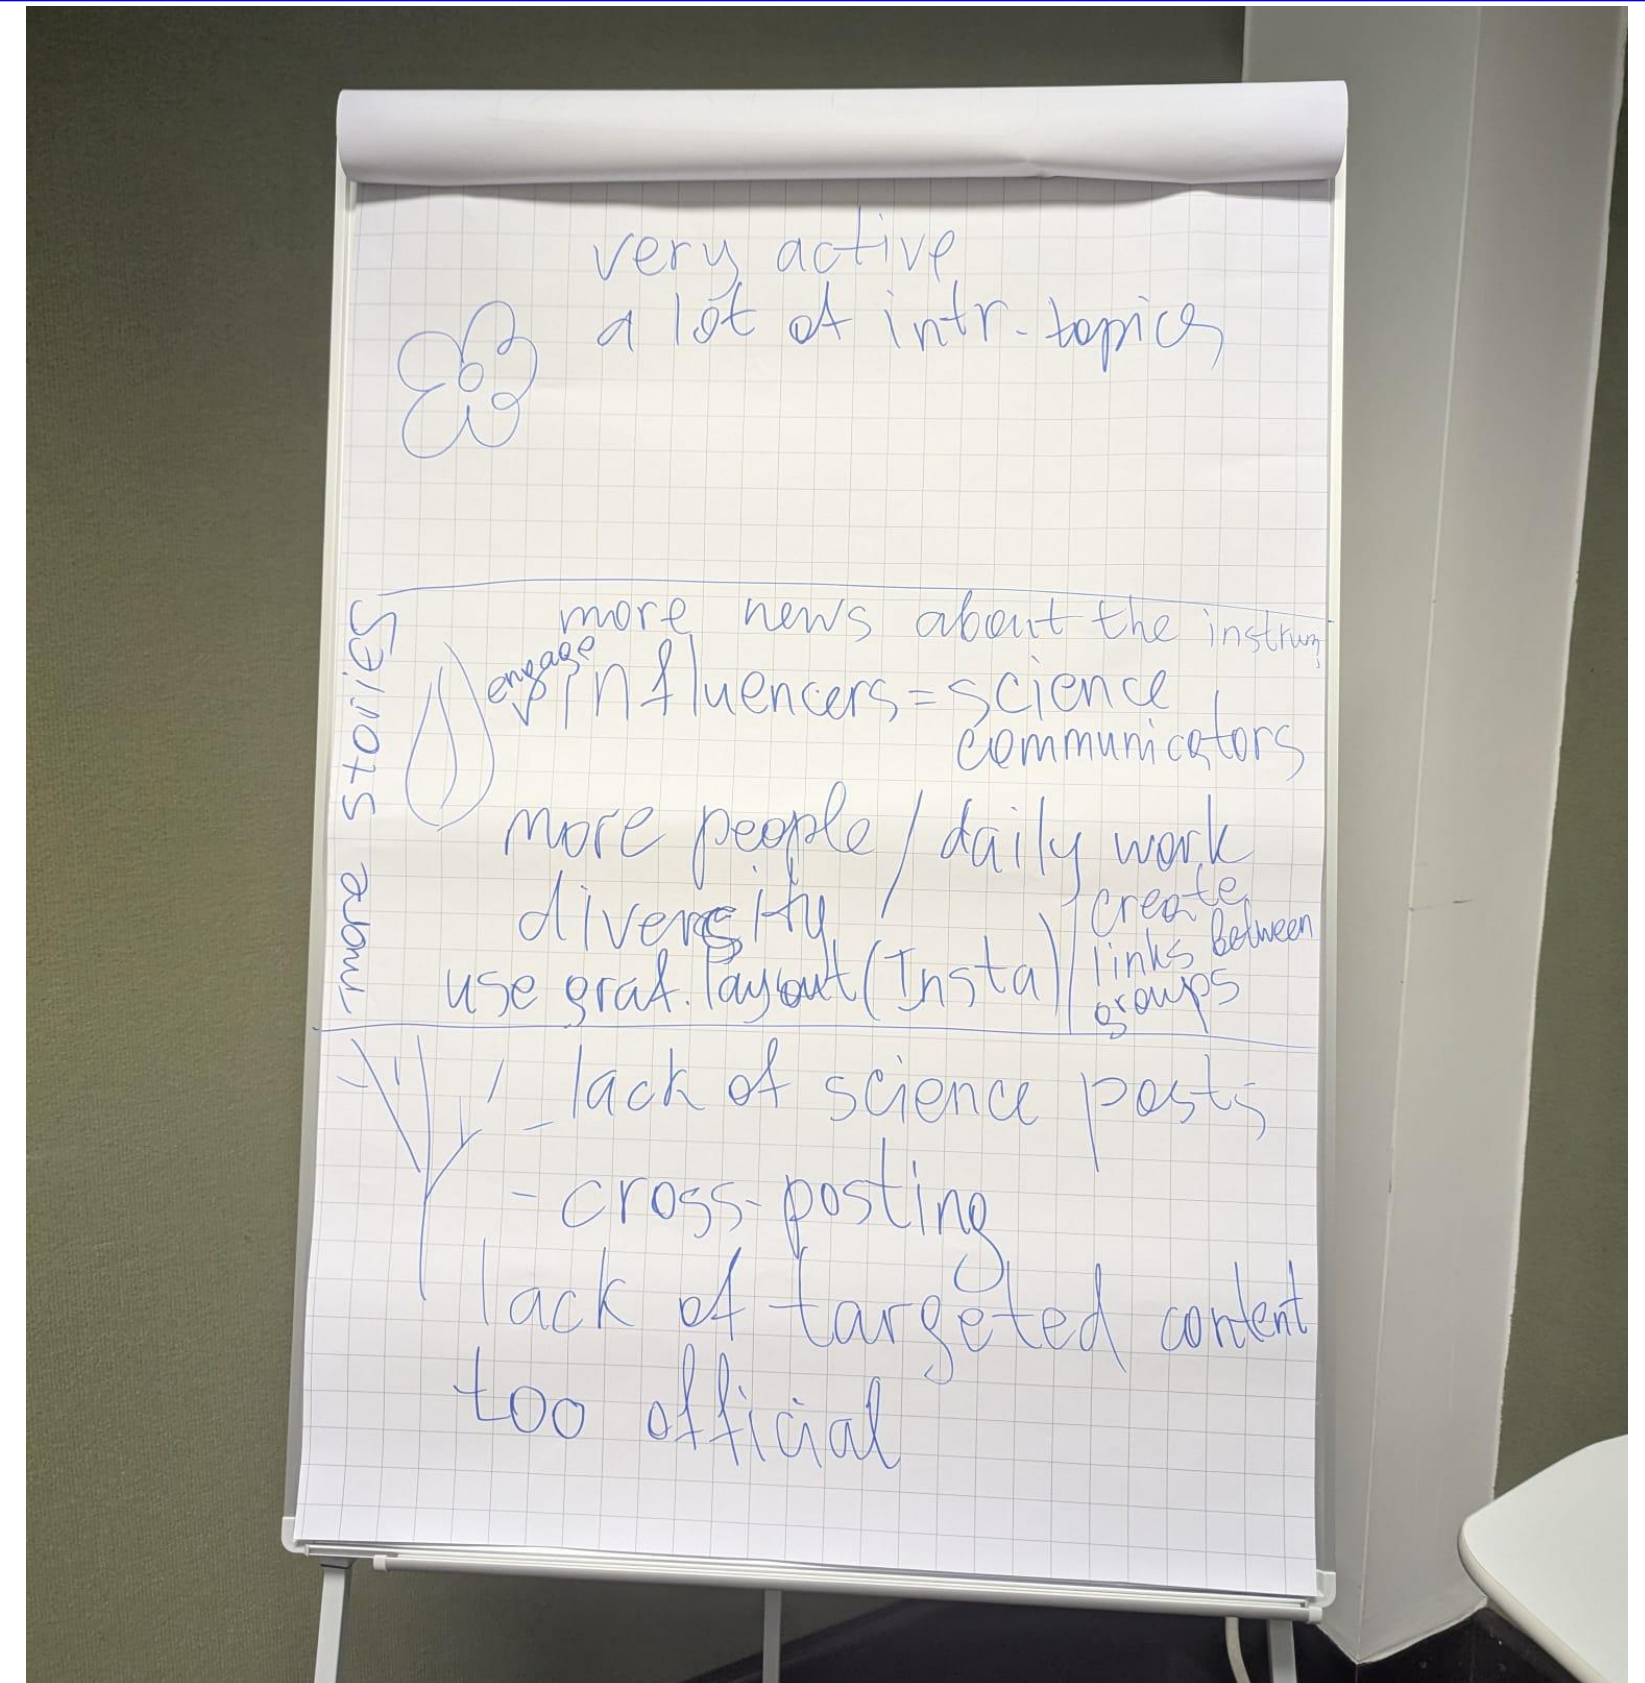 very active
a lot of intr. topics
more stories
more news about the instrum.
engage
influencers = science
communicators
more people / daily work
diversity /
create
links between
groups
use graf. layout (Insta)
- lack of science posts
- cross-posting
lack of targeted content
too official